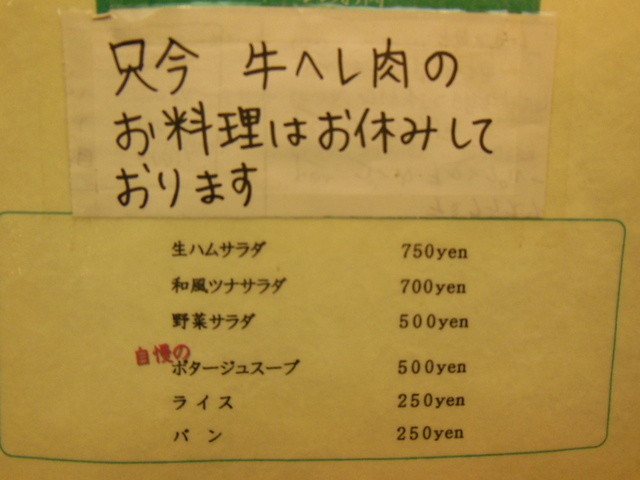 只今 牛ヘレ肉の
お料理はお休みして
おります
生ハムサラダ 750yen
和風ツナサラダ 700yen
野菜サラダ 500yen
自慢の
ポタージュスープ 500yen
ライス 250yen
パン 250yen